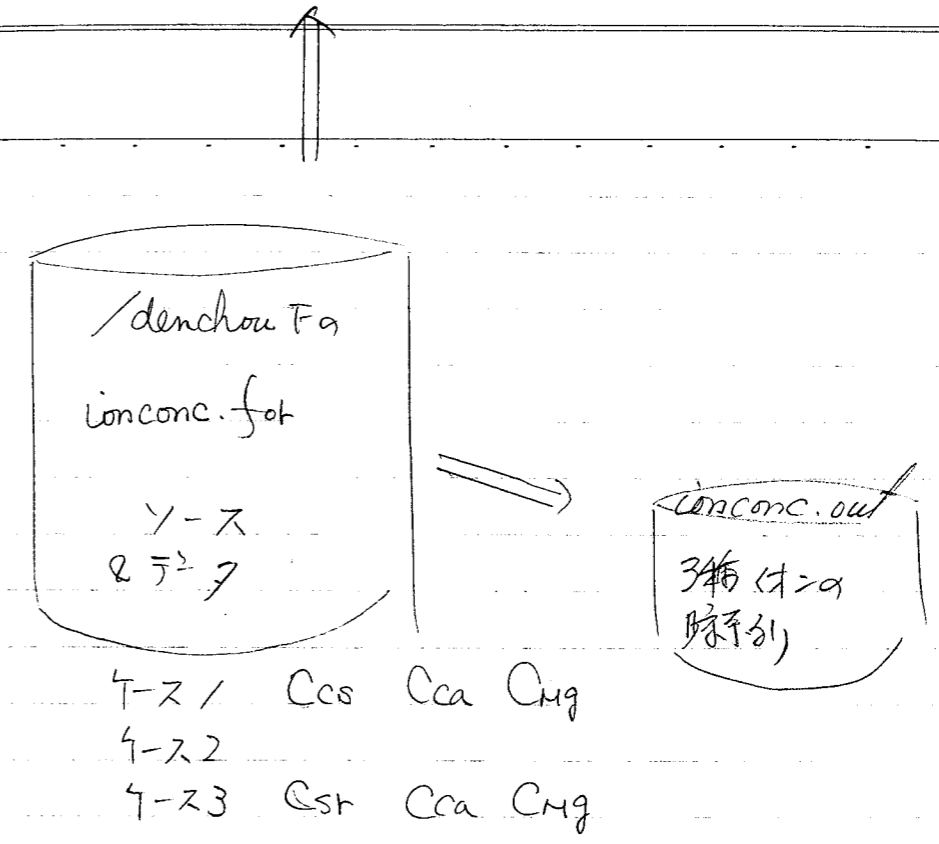 /denchou下の
ionconc.for
ソース
& データ
ionconc.out
3種イオンの
時系列
ケース1 Ccs Cca CMg
ケース2
ケース3 Csr Cca CMg